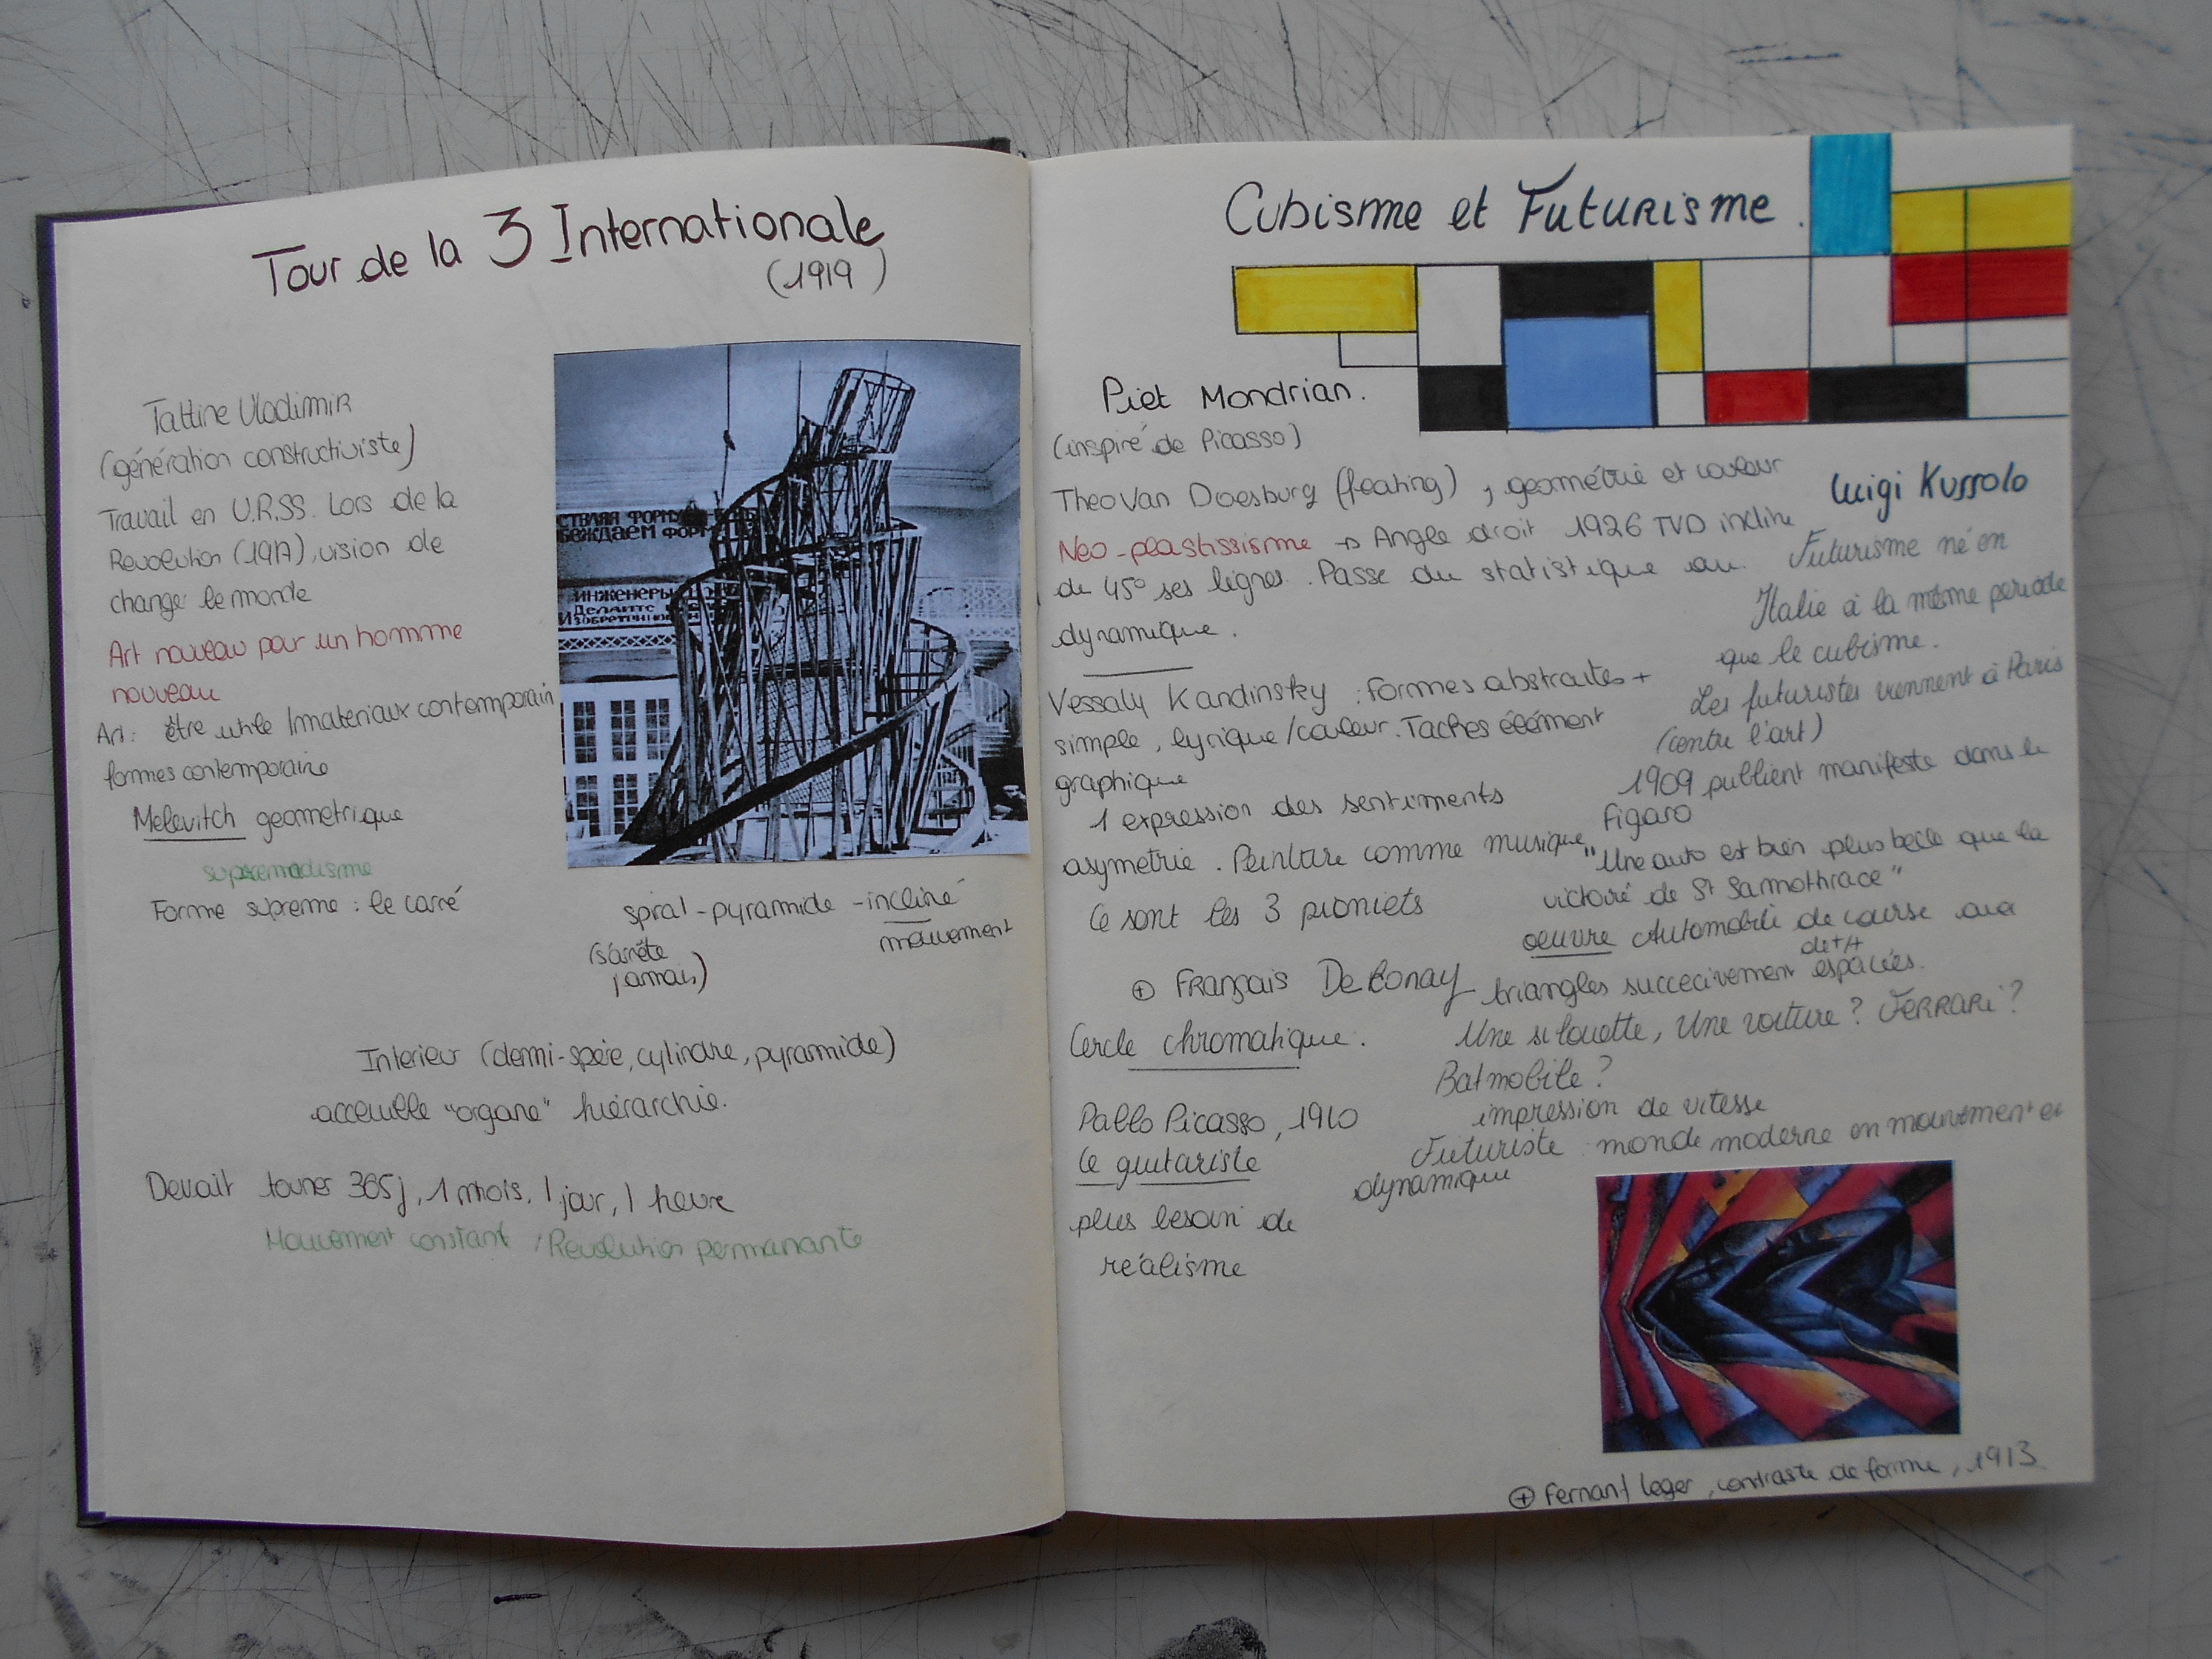 Tour de la 3 Internationale
(1919)
Tattine Vladimir
(génération constructiviste)
Travail en U.R.SS. Lors de la
Revolution (1917), vision de
changer le monde
Art nouveau pour un homme
nouveau
Art: être utile Inmateriaux contemporain
formes contemporaire
Melevitch geometrique
supremadisme
Forme supreme : le carré
СТВЛЯЯ ФОРМ
БЕЖДАЕМ ФОРМ
ИНЖЕНЕРЫ
ДЕЛАЙТЕ
ИЗОБРЕТЕН
spiral - pyramide - incliné
(s'arrête mouvement
jamais)
Interieur (demi-spère, cylindre, pyramide)
acceuille "organe" hiérarchie.
Devait tourner 365j, 1 mois, 1 jour, 1 heure
Mouvement constant / Revolution permanante
Cubisme et Futurisme.
Piet Mondrian.
(inspiré de Picasso)
Theo Van Doesburg (feating), géométrie et couleur
Neo-plastissisme → Angle droit 1926 TVD incline
de 45° ses lignes. Passe du statistique au
dynamique.
Vessaly Kandinsky : Formes abstraites +
simple, lyrique/couleur. Taches élément
graphique
1 expression des sentiments
asymetrie. Peinture comme musique
Ce sont les 3 pioniets
⊕ Français De Lonay
Cercle chromatique.
Pablo Picasso, 1910
le guitariste
plus besoin de
réalisme
Luigi Kussolo
Futurisme né en
Italie à la même periode
que le cubisme.
Les futuristes viennent à Paris
(centre l'art)
1909 publient manifeste dans le
Figaro
"Une auto est bien plus belle que la
victoire de St Samothrace"
oeuvre Automobile de course avec
de + /+
triangles succecivement espacées.
Une silouette, Une voiture? FERRARi?
Batmobile?
impression de vitesse
Futuriste monde moderne en mouvement et
dynamique
⊕ Fernant leger, contraste de forme, 1913.